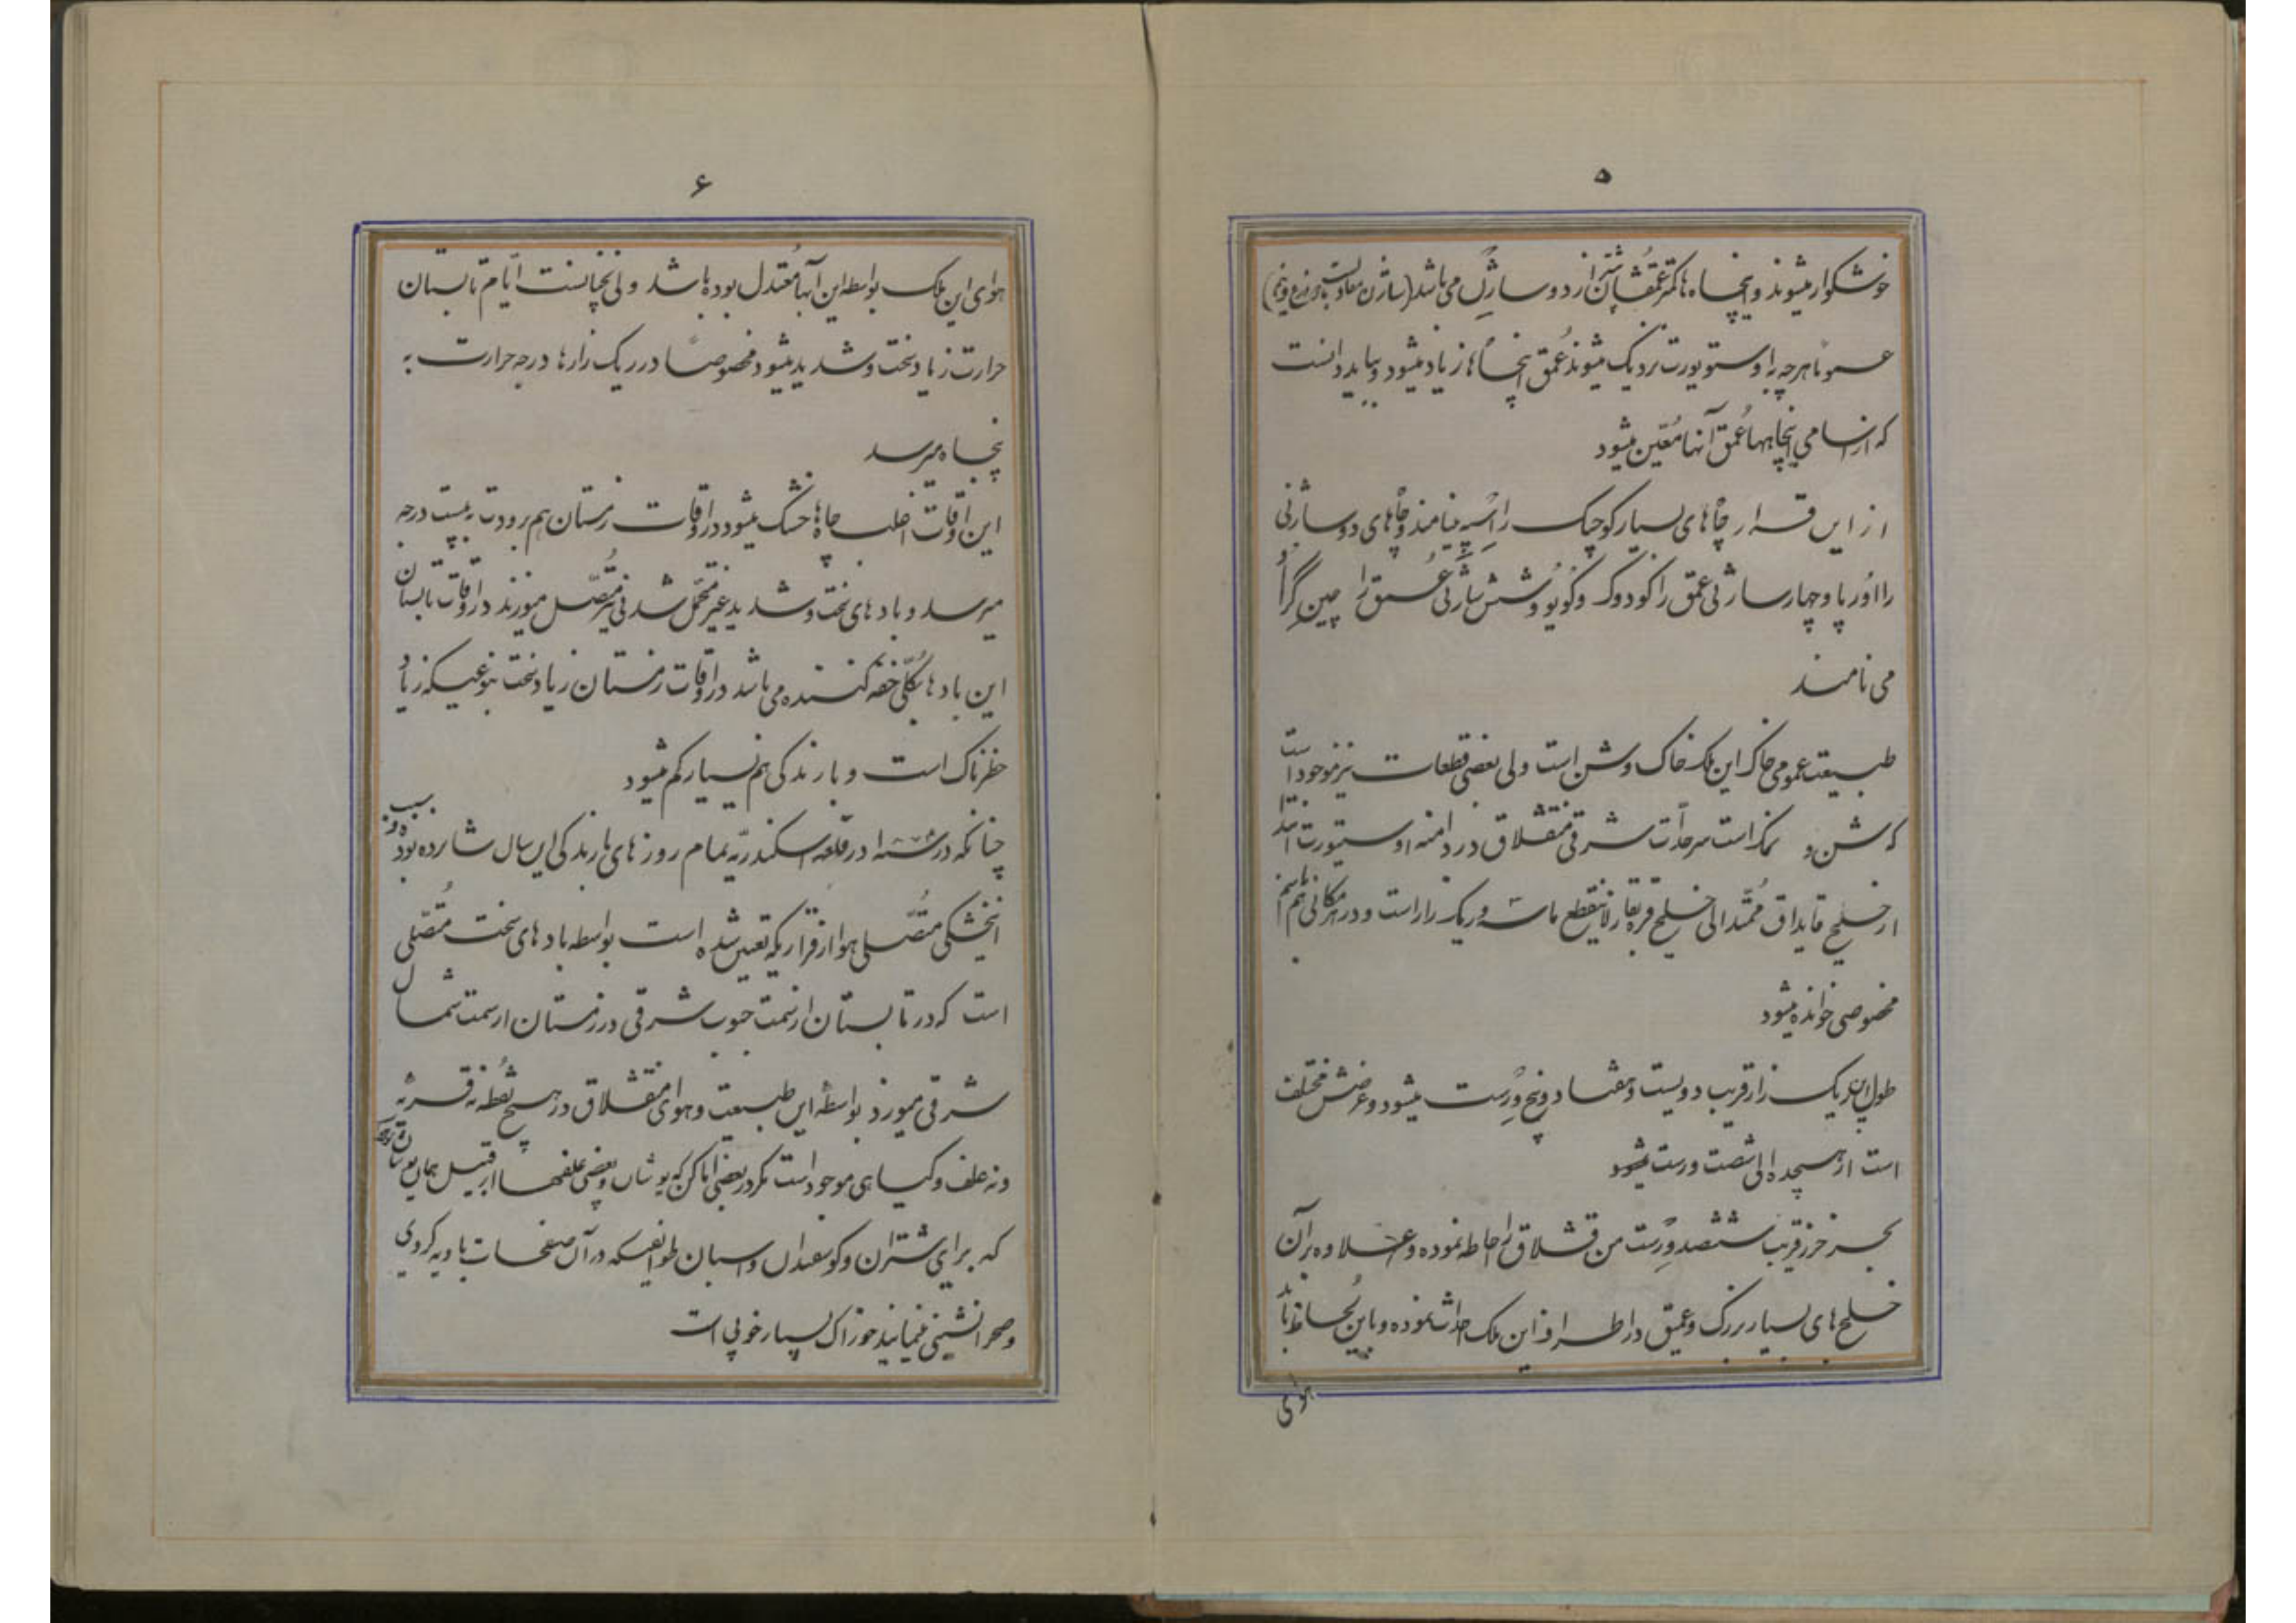 ۵
خوشکوار میشوند و اینچاه ها کمتر عمقشان از دو سارژن می باشد (سارژن معادل است با دو ذرع و نیم)
عموما هر چه به اوستویورت نزدیک میشوند عمق اینچاها زیاد میشود و باید دانست
که از اسامی اینچاهها عمق آنها معین میشود
از این قرار چاهای بسیار کوچک را اسپه مینامند و چاهای دو سارژنی
را اورپا و چهار سارژنی عمق را کودوک و کویو و شش سارژنی عمق را چین گرائو
می نامند
طبیعت عمومی خاک این ملک خاک و شن است ولی بعضی قطعات نیز موجود است
که شن و نمک است سرحدات شرقی منقشلاق در دامنه اوستیورت است
از خلیج قایداق ممتد الی خلیج قره بقاز لاینقطع ماسه و ریک زار است و در هر مکانی هم باسم
مخصوصی خوانده میشود
طول این ریک زار قریب دویست و هفتاد و پنج ورست میشود و عرضش مختلف
است از هیجده الی شصت ورست میشود
بحر خزر قریب ششصد ورست من قشلاق را احاطه نموده و علاوه بر آن
خلیج های بسیار بزرک و عمیق در اطراف این ملک احداث نموده و باین لحاظ باید
هوای
۶
هوای این ملک بواسطه این آبها معتدل بوده باشد ولی نچنانست ایام تابستان
حرارت زیاد سخت و شدید میشود مخصوصا در ریک زارها درجه حرارت به
پنجاه میرسد
این اوقات اغلب چاه ها خشک میشود در اوقات زمستان هم برودت به بیست درجه
میرسد و باد های سخت و شدید غیر متحمل شدنی نیز متصل میوزند در اوقات تابستان
این باد ها بکلی خفه کننده می باشد در اوقات زمستان زیاد سخت بنوعیکه زیاد
خطرناک است و بارندگی هم بسیار کم میشود
چنانکه در سنه در قلعه اسکندریه تمام روز های بارندگی این سال شانزده بود و سبب
اینخشکی متصلی هوا از قراریکه تعیین شده است بواسطه باد های سخت متصلی
است که در تابستان از سمت جنوب شرقی در زمستان از سمت شمال
شرقی میوزد بواسطه این طبیعت و هوای منقشلاق در هیچ نقطه نه قریه
و نه علف و کیاهی موجود است مکر در بعضی اماکن که یوشان و بعضی علفها از قبیل همان یوشان
که برای شتران و کوسفندان و اسبان طوایفیکه در آن صفحات بادیه کردی
و صحرا نشینی مینمایند خوراک بسیار خوبی است